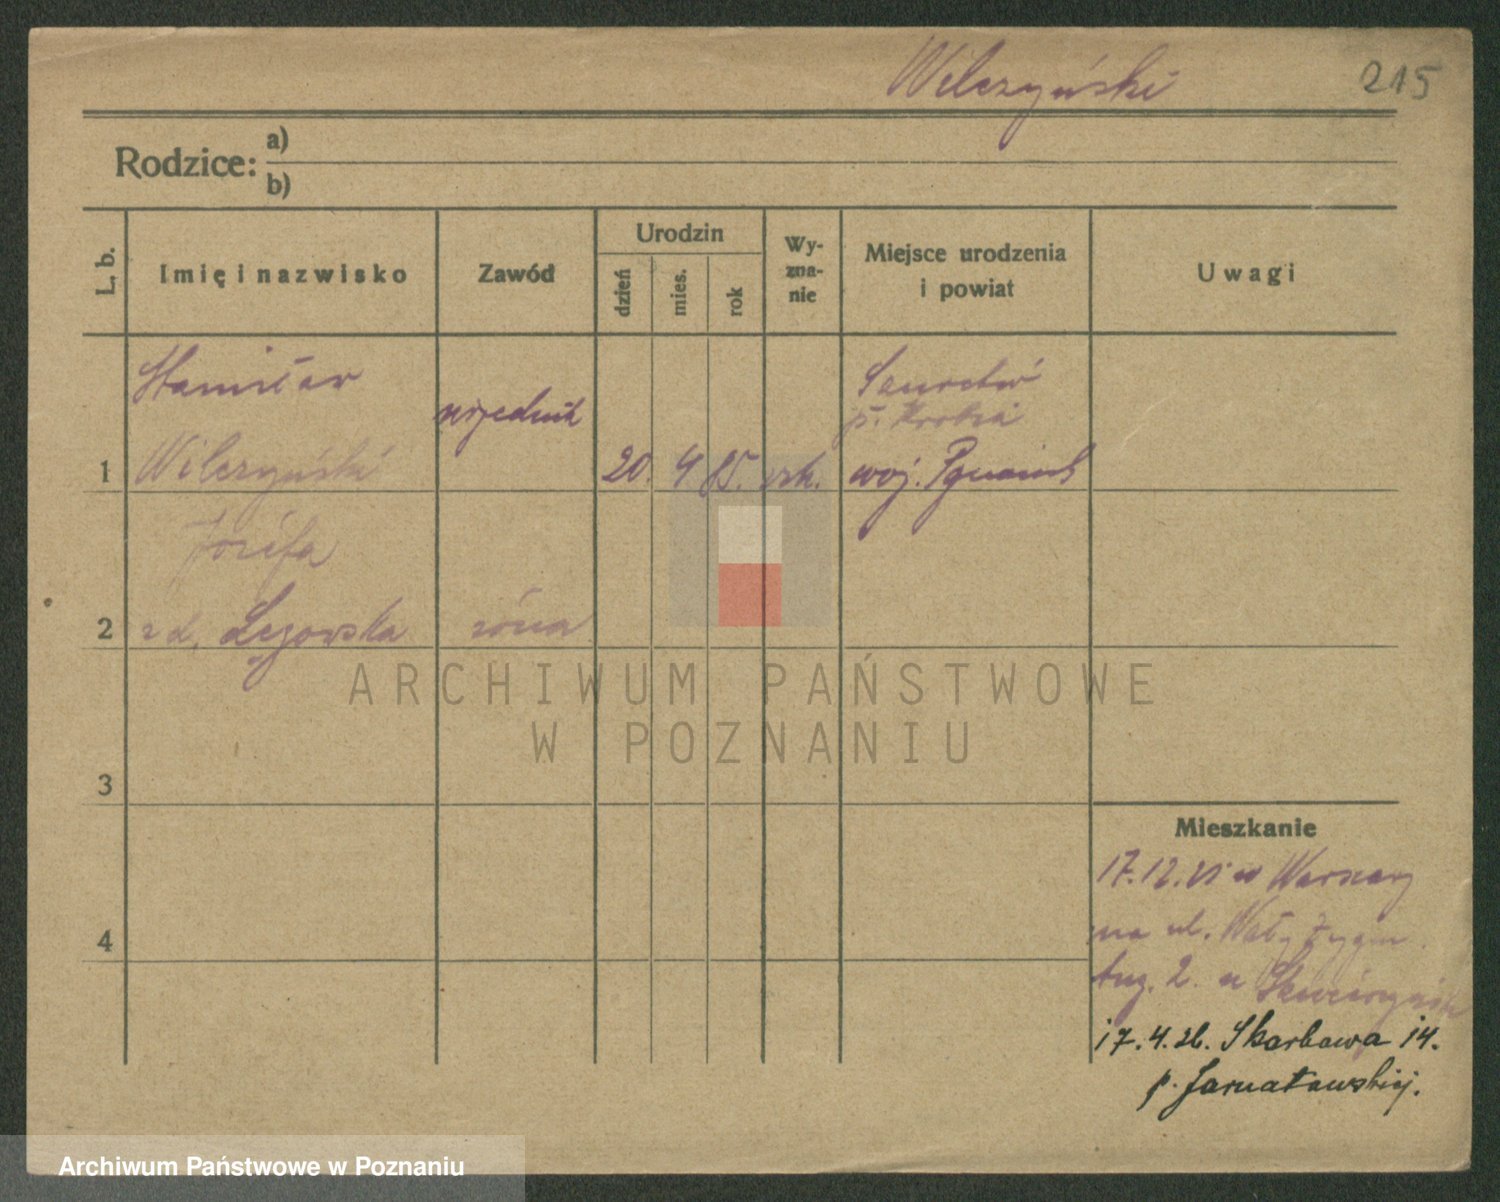 Wilczyński 215
Rodzice: a)
b)
L. b.
Imię i nazwisko
Zawód
Urodzin
dzień
mies.
rok
Wy-
zna-
nie
Miejsce urodzenia
i powiat
Uwagi
1
Stanisław
Wilczyński
urzędnik
20. 4 85. rzk.
p.
woj.
2
Józefa
zd.
żona
3
4
Mieszkanie
17.12.25 w Warszawy
na ul. Wały Zygm.
Aug. 2. u
17.4.26. Skarbowa 14.
p. Jarnatowskiej.
ARCHIWUM PAŃSTWOWE
W POZNANIU
Archiwum Państwowe w Poznaniu